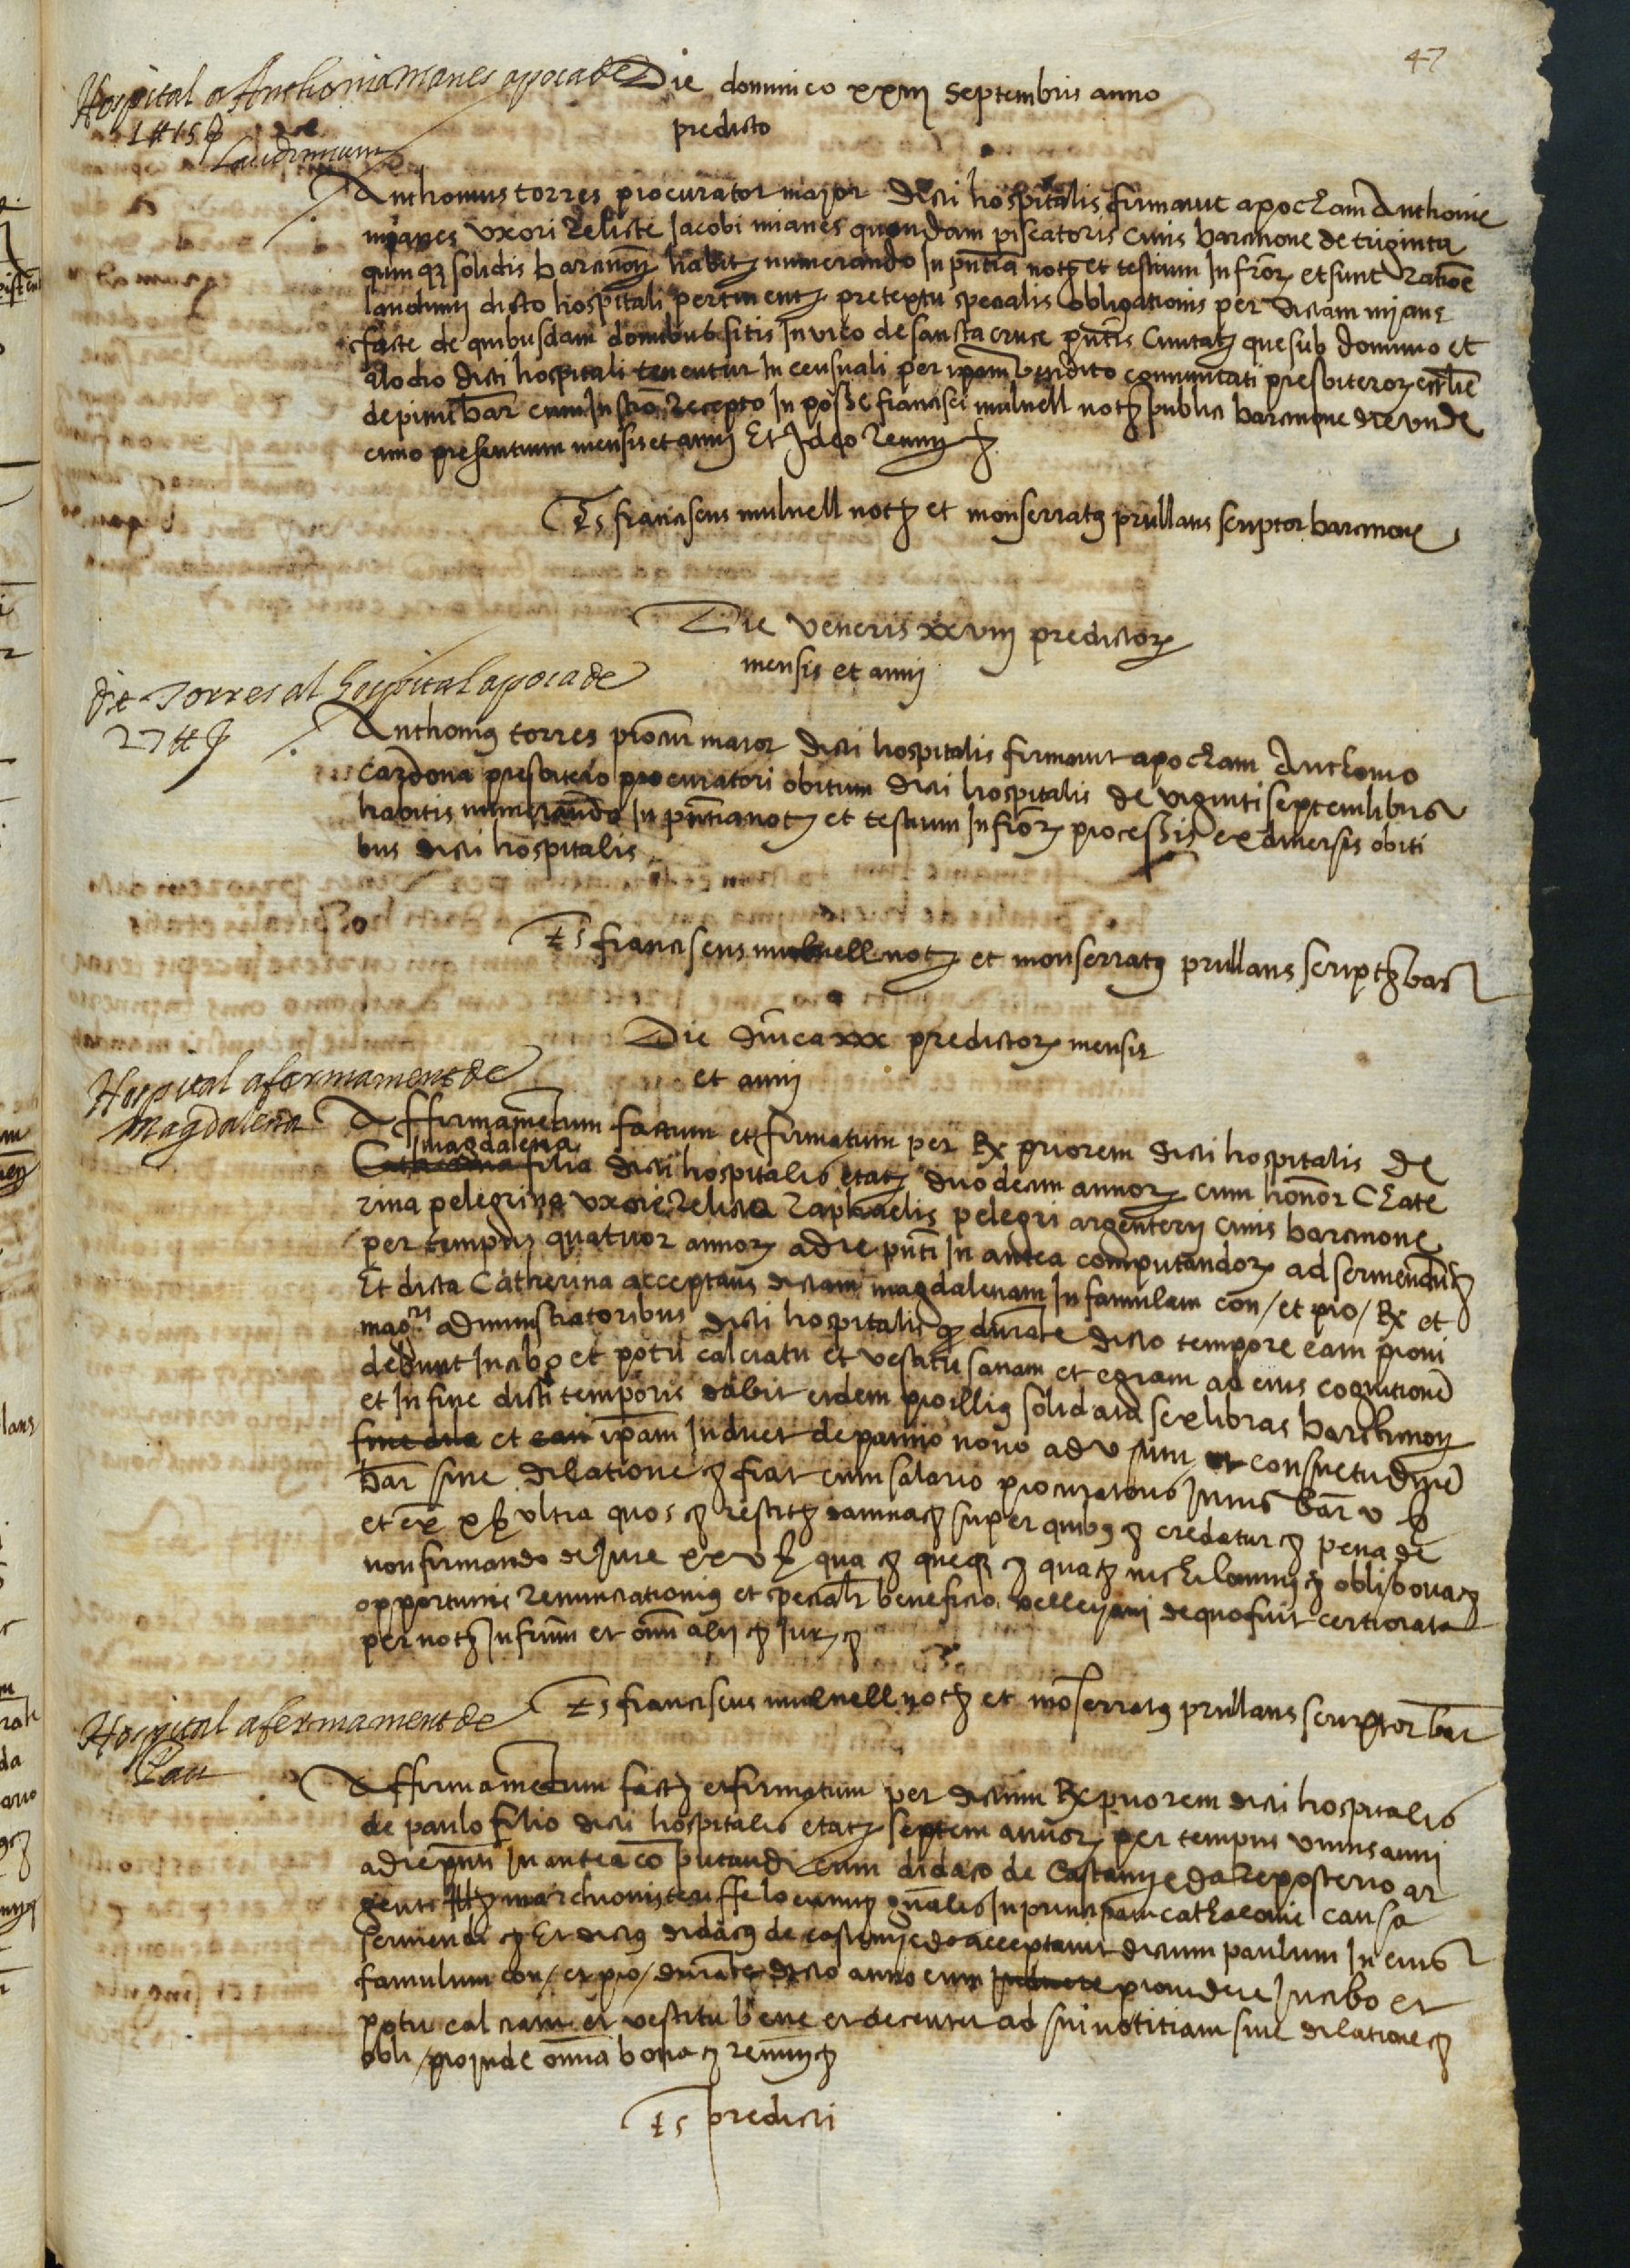 47
Hospital a Anthonia Mianes apoca de
1 ₶ 15 ß de
Laudimium
Die dominico xxiii Septembris anno
predicto
Anthonius torres procurator major dicti hospitalis firmavit apocham Anthonie
mianes uxori relicte Jacobi mianes quondam piscatoris civis barcinone de triginta
quinqz solidis barcinon habitz numerando In pntia notz et testium Infror et sunt ratione
laudimii dicto hospitali pertinentz pretextu specialis obligationis per dictam mjans
facte de quibusdam domibus sitis In vico de sancta cruce pntis Civitatz que sub dominio et
alodio dicti hospitali tenentur In censuali per ipam vendito comunitati presbiteror ecclie
de pinu bar cum Instro recepto In posse francisci mulnell noth publici barcinone die unde
cimo presentium mensis et anni Et Ideo renun &
Ts franciscus mulnell noth et monserratz prullans scriptor barcinone
Die veneris xxviii predictor
mensis et anni
die Torres al hospital apoca de
27 ₶
Anthonius torres procur maior dicti hospitalis firmavit apocham Anthonio
Cardona presbitero procuratori obituum dicti hospitalis de viginti septem libris
habitis numerando In pntia notz et testium Infror processis ex diversis obiti
bus dicti hospitalis
Ts franciscus mulnell notz et monserratz prullans scripth bar
Die dnica xxx predictor mensis
et anni
Hospital afermament de
Magdalena
Affirmamentum factum et firmatum per Rx priorem dicti hospitalis de
magdalena
Catherina filia dicti hospitalis etatz duodecim annor cum honor Cathe
rina pelegrina uxore relicta Raphaelis pelegri argenterii civis barcinone
per tempus quatuor annor a die pnti In antea computandor ad serviendum &
Et dicta Catherina acceptans dictam magdalenam In famulam con / et pro / Rx et
magcis administratoribus dicti hospitalis qz durante dicto tempore eam provi
debunt In cibo et potu calciatu et vestitu sanam et egram ad eius cognitione
et In fine dicti temporis dabit eidem pro illius solidata sex libras barchinon
sine dila et eam ipam Induet de panno novo ad usum et consuetudine
bar sine dilatione & fiat cum salario procuratoris Intus bar v ß
et ex x ß ultra quos & restith damna & super quibz & credatur & pena de
non firmando de Jure xxv ß qua & queqz & quatz nichilominz & obli bona &
opportunis renunciationibz et specialr beneficio velleyani de quo fuit certiorata
per noth Infrm et omi alii & Jur &
Ts franciscus mulnell noth et moserratz prullans scriptor bar
Hospital afermament de
Pau
Affirmamentum facth et firmatum per dictum Rx priorem dicti hospitalis
de paulo filio dicti hospitalis etatz septem annor per tempus unius anni
a die pnti In antea computandi cum didaco de Castanyeda reposterio ar
genti Ill marchionis locumtz gnalis In principatu cathalonie causa
serviendi & Et dictz didacz de castanyeda acceptavit dictum paulum In eius
famulum con / et pro / durante dicto anno eum Induere providere In cibo et
potu calciatu et vestitu bene et decenter ad sui notitiam sine dilatione &
obli / proinde omia bona & renun &
Ts predicti